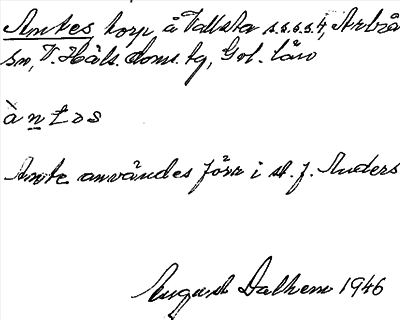 Antes torp å Vallsta s.s.s.s. 4, Arbrå
sn, V. Häls. doms. tg, Gvl. län
àntəs
Ante användes förr i st. f. Anders
August Dalhem 1946